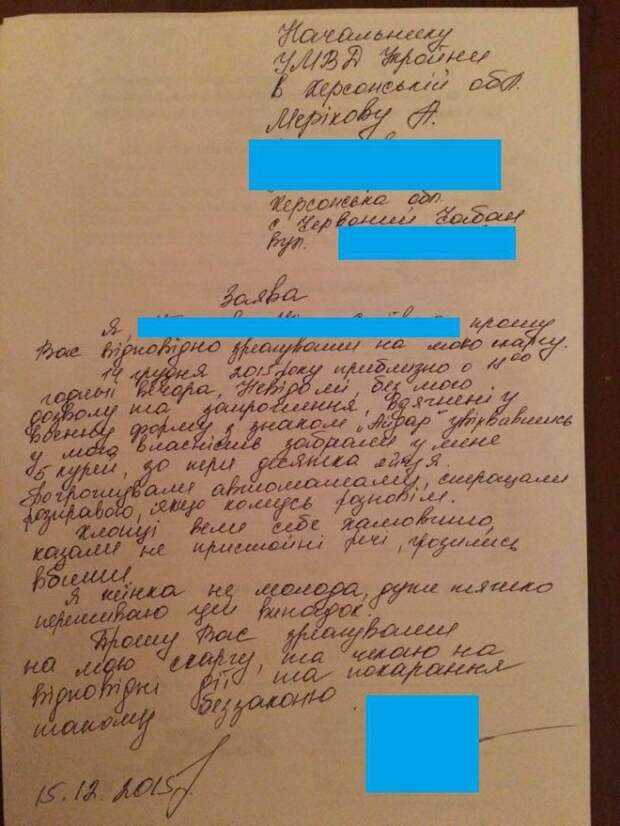 Начальнику
УМВД Украйни
в Херсонській обл.
Мерікову А.
Херсонська обл.
с. Червоний Чабан
вул.
Заява
Я, прошу
Вас відповідно зреагувати на мою скаргу.
14 грудня 2015 року приблизно о 11 00
годині вечора, невідомі без мого
дозволу та запрошення, вдягнені у
воєнну форму з знаком „Айдар" увірвавшись
у мою власність забрали у мене
5 курей, та три десятка яйця.
Погрожували автоматами, стращали
розправою, якщо комусь розповім.
Хлопці вели себе хамовито,
казали не пристойні речі, грозились
вбити.
Я жінка не молода, дуже тяжко
переживаю цей випадок.
Прошу Вас зреагувати
на мою скаргу, та чекаю на
відповідні дії та покарання
такому беззаконю.
15.12.2015